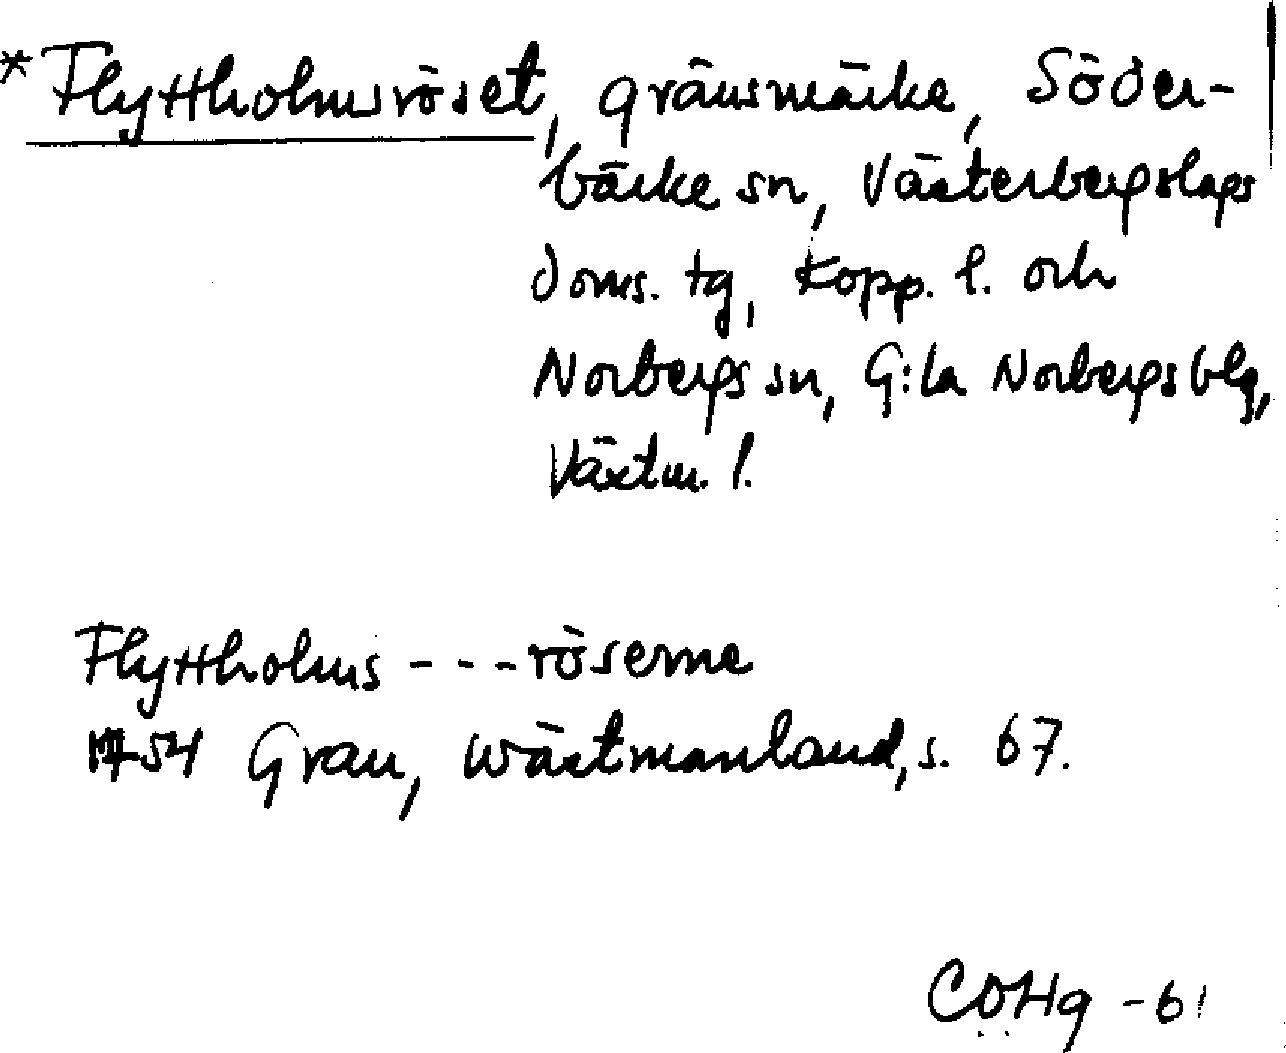 *Flyttholmsröset, gränsmärke, Söder-
bärke sn, Västerbergslags
doms. tg, Kopp. l. och
Norbergs sn, G:la Norbergs blg,
Västm. l.
Flyttholms - - - röserne
1754 Grau, Wästmanland, s. 67.
COHg -61